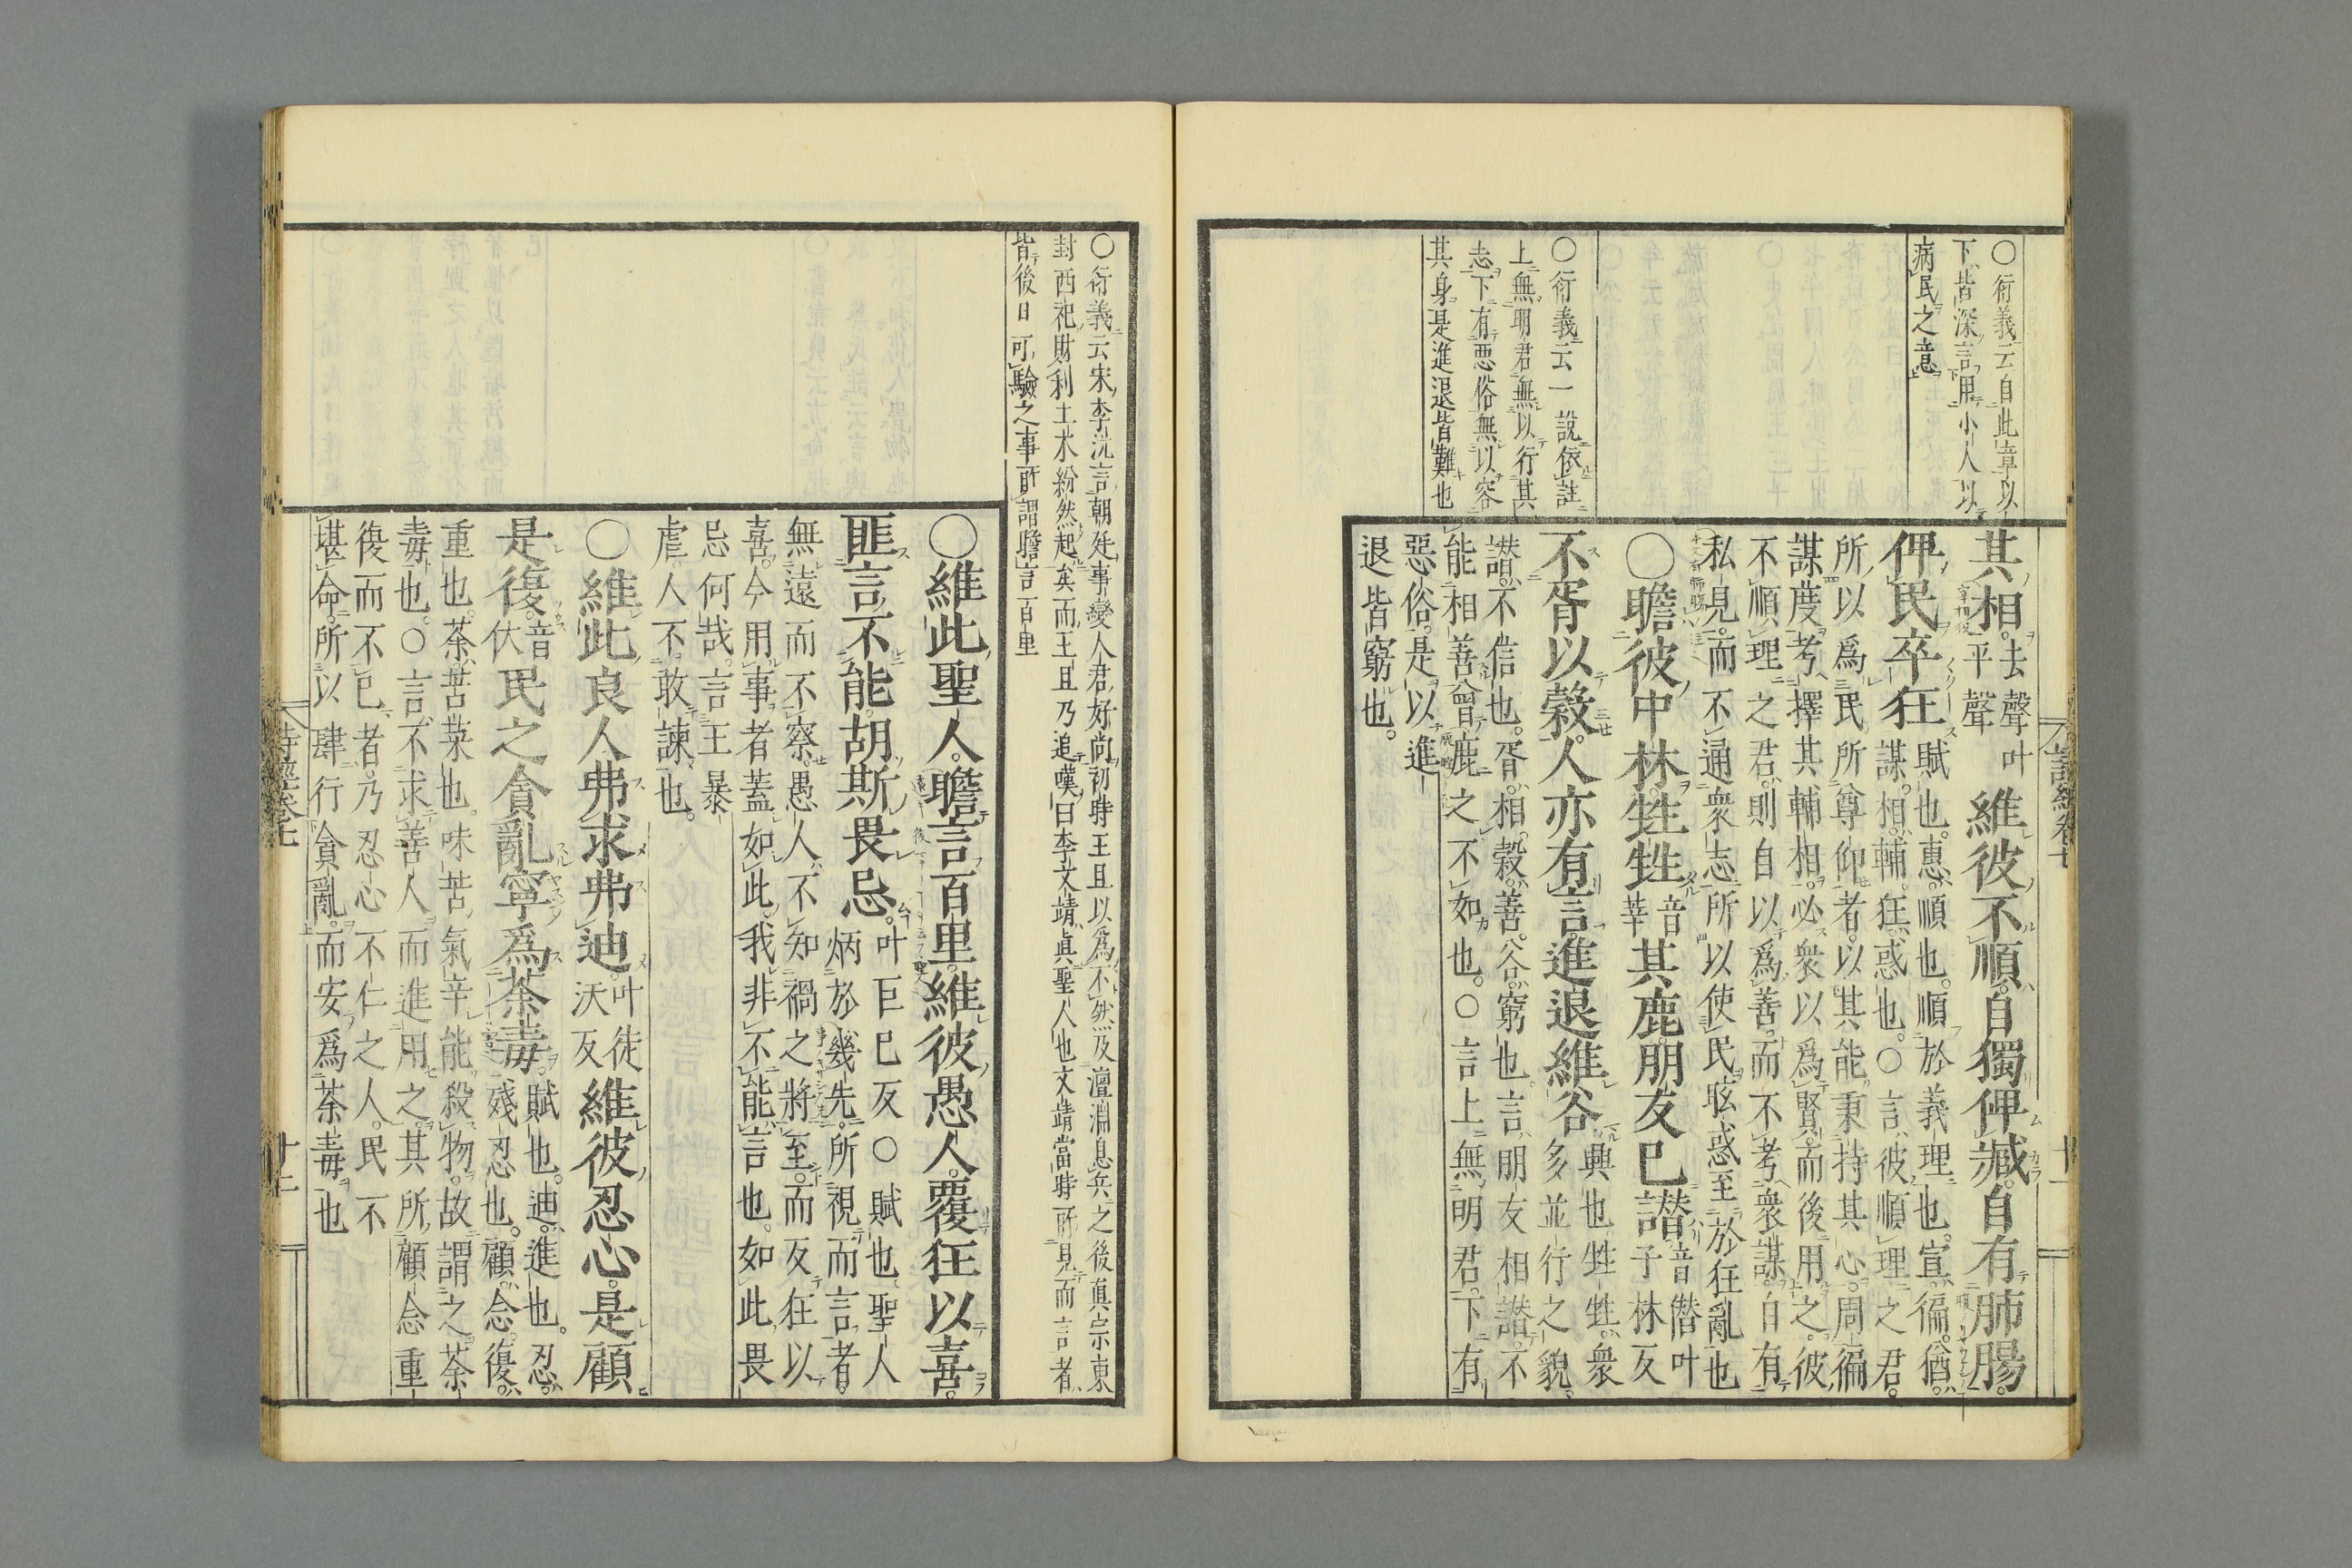 ○衍義云自此章以
下皆深言用小人以
病民之意
○衍義云一說依註
上無明君無以行其
志下有惡俗無以容
其身是進退皆難也
其相去聲叶平聲維彼不順自獨俾臧自有肺腸
俾民卒狂賦也惠順也順於義理也宣徧猶
謀相輔狂惑也○言彼順理之君
所以爲民所尊仰者以其能秉持其心周徧
謀度考擇其輔相必衆以爲賢而後用之彼
不順理之君則自以爲善而不考衆謀自有
私見而不通衆志所以使民眩惑至於狂亂也
○瞻彼中林甡甡音莘其鹿朋友已譖音僭叶子林反
不胥以穀人亦有言進退維谷興也甡甡衆
多並行之貌
譖不信也胥相穀善谷窮也言朋友相譖不
能相善曾鹿之不如也○言上無明君下有
惡俗是以進
退皆窮也
詩經卷七
十一
○衍義云宋李沆言朝廷事變人君好尚初時王且以爲不然及澶淵息兵之後眞宗東
封西祀財利土木紛然起矣而王且乃追嘆曰李文靖眞聖人也文靖當時所見而言者
皆後日可驗之事所謂瞻言百里
○維此聖人瞻言百里維彼愚人覆狂以喜
匪言不能胡斯畏忌叶巨已反○賦也聖人
炳於幾先所視而言者
無遠而不察愚人不知禍之將至而反狂以
喜今用事者蓋如此我非不能言也如此畏
忌何哉言王暴
虐人不敢諫也
○維此良人弗求弗迪叶徒沃反維彼忍心是顧
是復音伏民之貪亂寧爲荼毒賦也迪進也忍
殘忍也顧念復
重也荼苦菜也味苦氣辛能殺物故謂之荼
毒也○言不求善人而進用之其所顧念重
復而不已者乃忍心不仁之人民不
堪命所以肆行貪亂而安爲荼毒也
詩經卷七
十二